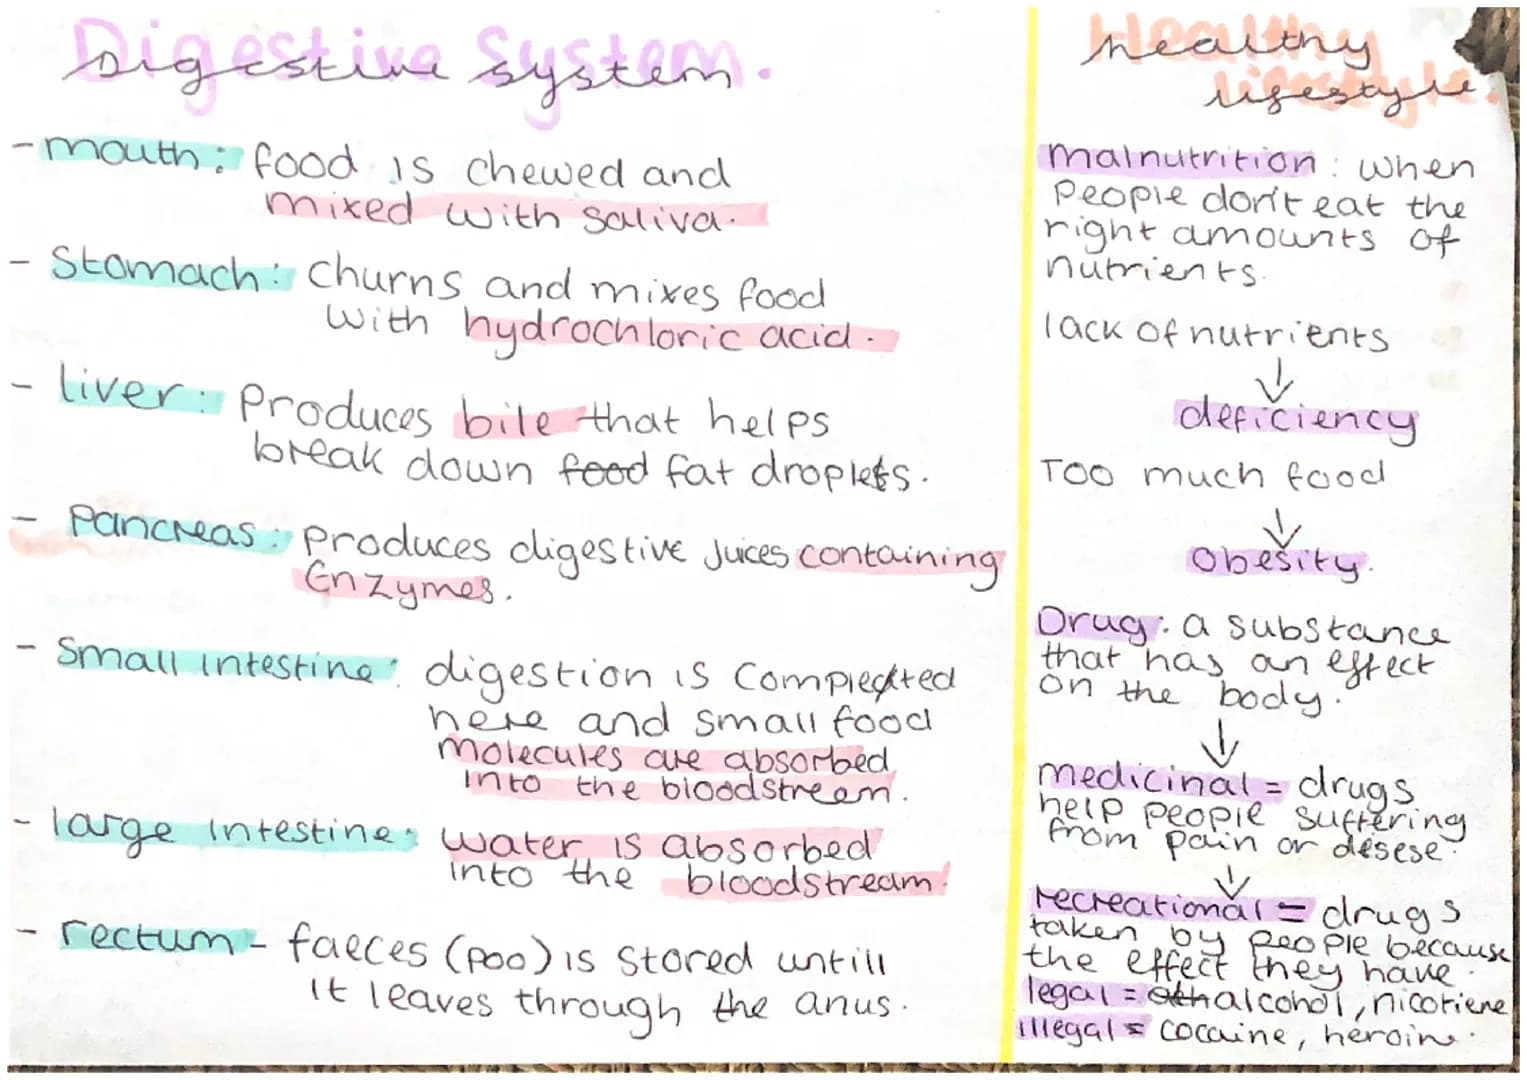 Digestive System.
- mouth: food is chewed and
mixed with saliva.
- Stomach: Churns and mixes food
with hydrochloric acid.
- liver: Produces bile that helps
break down food fat droplets.
- Pancreas: Produces digestive Juices containing
Enzymes.
- Small intestine: digestion is Completed
here and small food
molecules are absorbed
into the bloodstream.
- large intestine: water is absorbed
into the bloodstream.
- rectum - faeces (poo) is stored untill
it leaves through the anus.
Healthy
lifestyle.
malnutrition: when
People don't eat the
right amounts of
nutrients.
lack of nutrients
↓
deficiency
Too much food
↓
Obesity.
Drug: a substance
that has an effect
on the body.
↓
medicinal = drugs
help people suffering
from pain or desese.
↓
recreational = drugs
taken by people because
the effect they have.
legal = alcohol, nicotiene
illegal = cocaine, heroin.